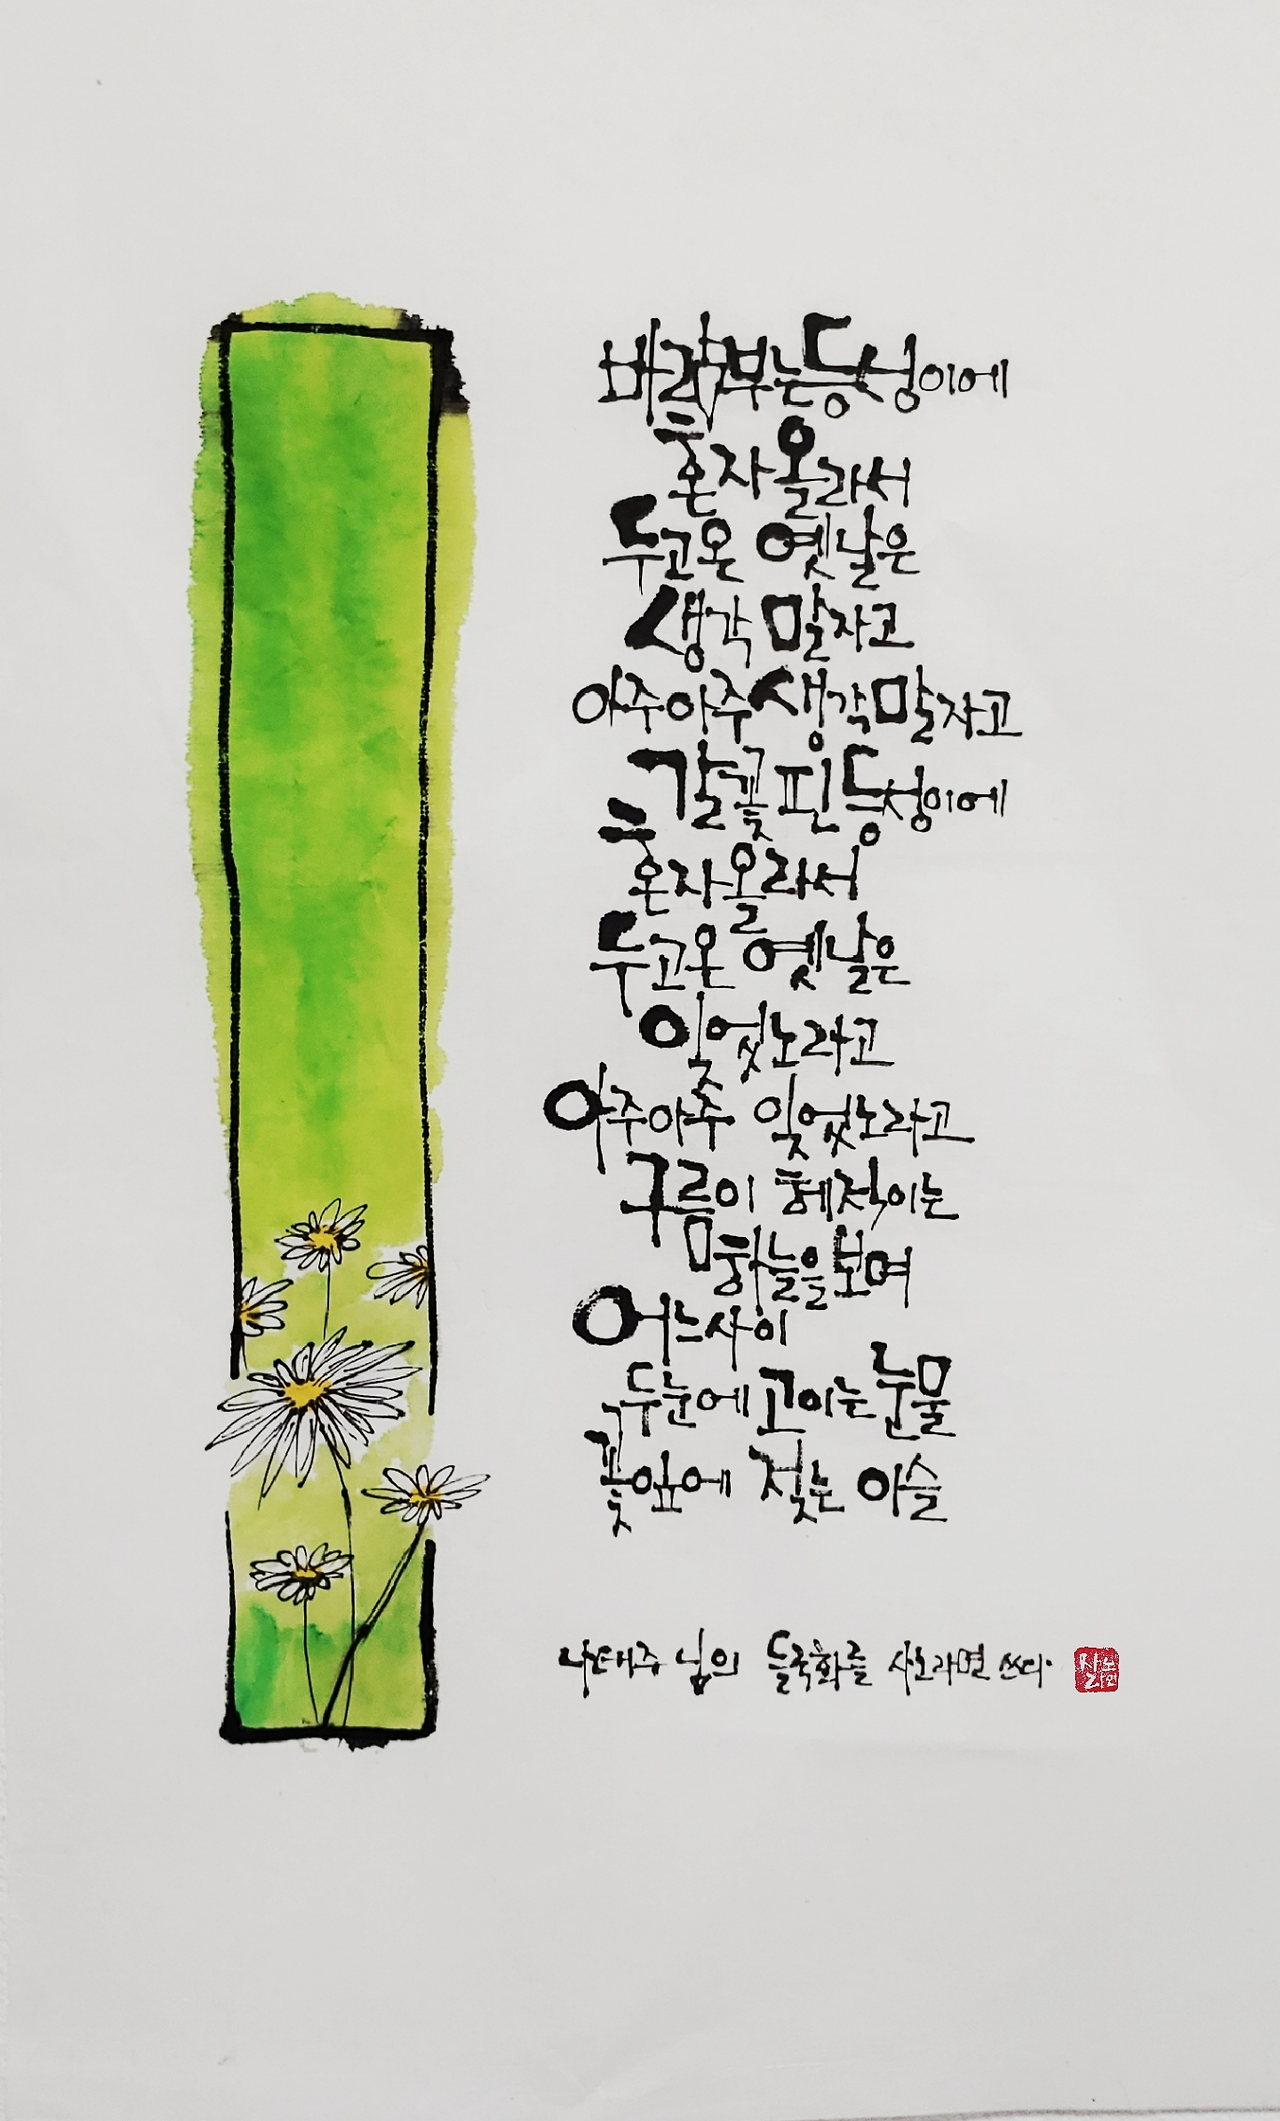 바람부는 등성이에
혼자 올라서
두고온 옛날은
생각 말자고
아주아주 생각말자고
갈꽃 핀 등성이에
혼자올라서
두고온 옛날은
잊었노라고
아주아주 잊었노라고
구름이 헤적이는
하늘을 보며
어느사이
두눈에 고이는 눈물
꽃잎에 젖는 이슬
나태주 님의 들국화를 쓰다